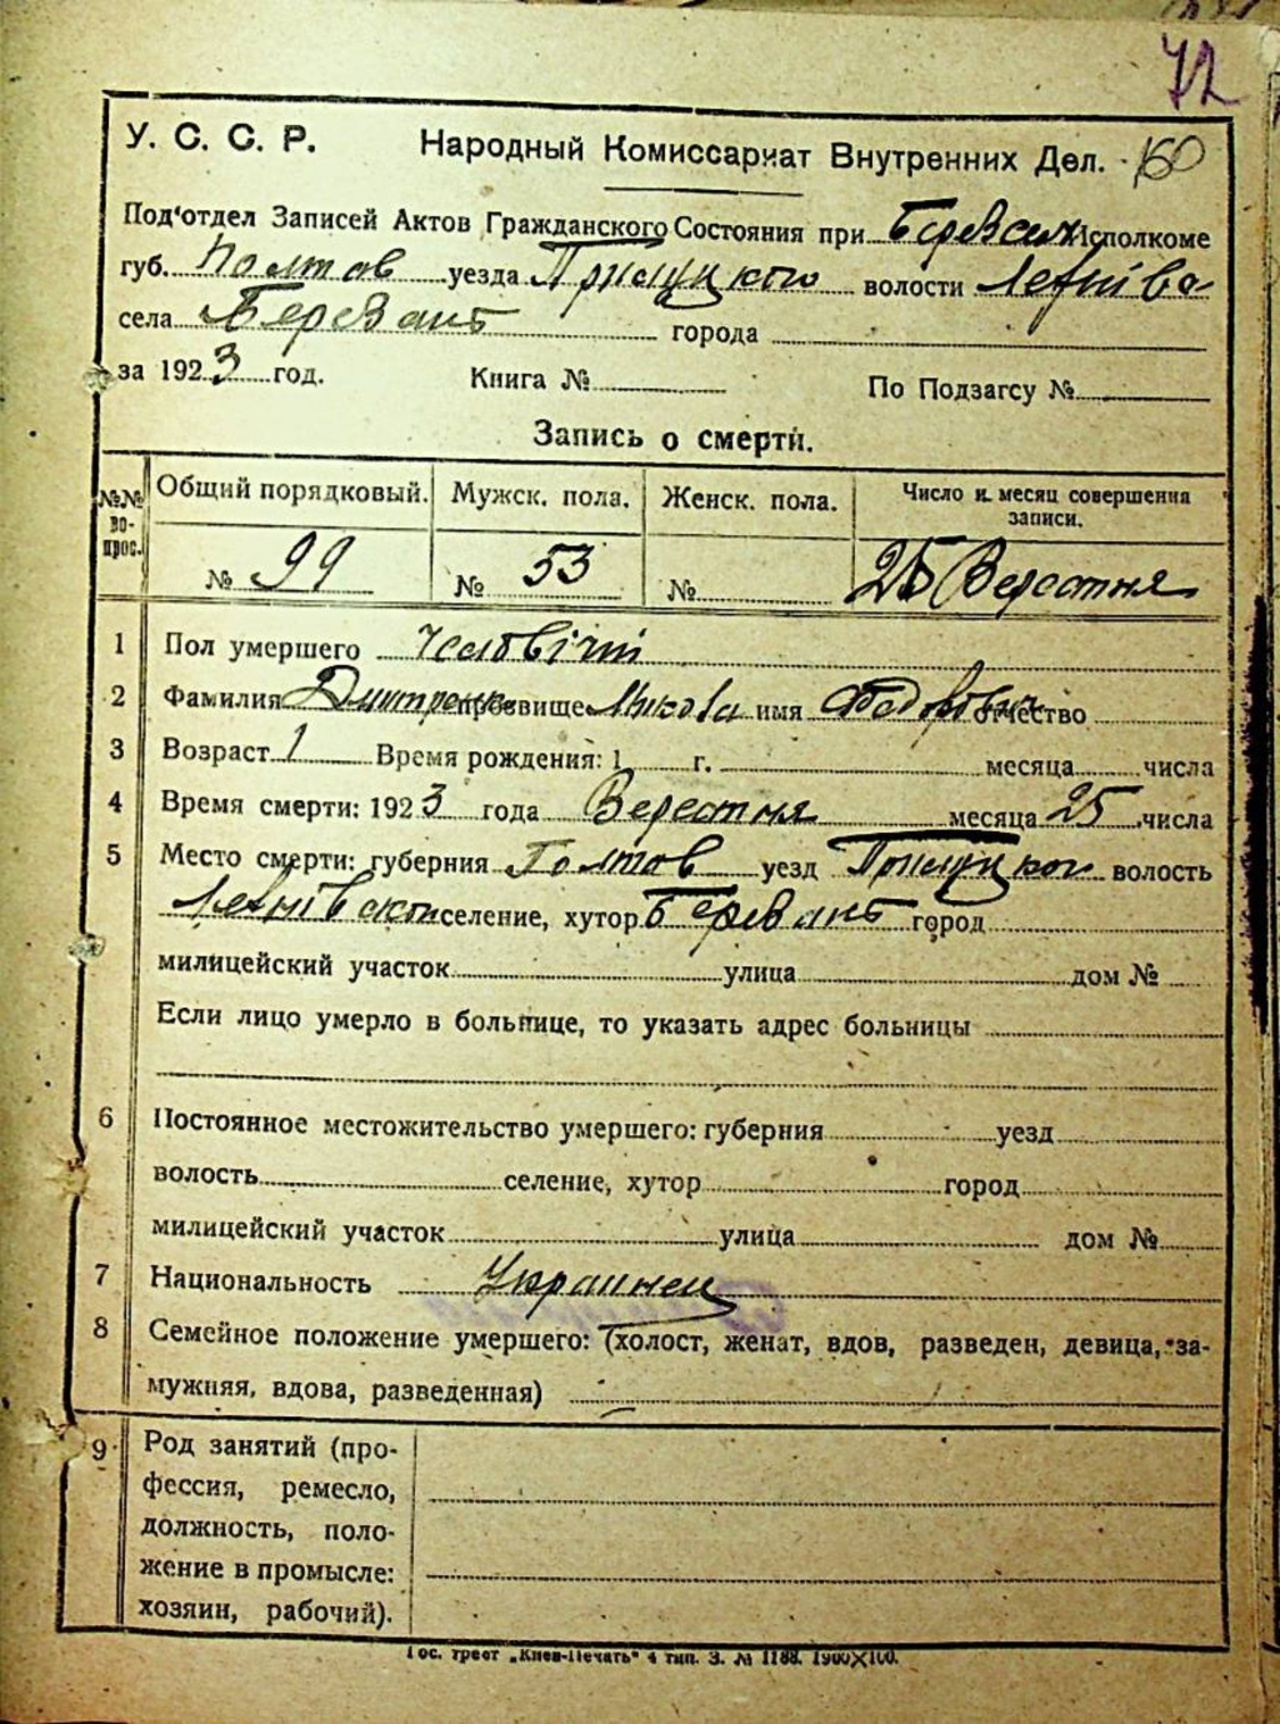 72
У. С. С. Р. Народный Комиссариат Внутренних Дел. 160
Под‘отдел Записей Актов Гражданского Состояния при Исполкоме
губ. Полтав уезда волости
села Березань города
за 1923 год. Книга № По Подзагсу №
Запись о смерти.
№№ во-прос. Общий порядковый. Мужск. пола. Женск. пола. Число и месяц совершения записи.
№ 99 № 53 № 25 Верестня
1 Пол умершего Чоловічій
2 Фамилия Дмитренко прозвище Микола имя Федорович отчество
3 Возраст 1 Время рождения: 1 г. месяца числа
4 Время смерти: 1923 года Верестня месяца 25 числа
5 Место смерти: губерния Полтав уезд волость
селение, хутор Березань город
милицейский участок улица дом №
Если лицо умерло в больнице, то указать адрес больницы
6 Постоянное местожительство умершего: губерния уезд
волость селение, хутор город
милицейский участок улица дом №
7 Национальность Украинец
8 Семейное положение умершего: (холост, женат, вдов, разведен, девица, за-
мужняя, вдова, разведенная)
9 Род занятий (про-
фессия, ремесло,
должность, поло-
жение в промысле:
хозяин, рабочий).
Гос. трест „Киев-Печать“ 4 тип. З. № 1188. 1900×100.